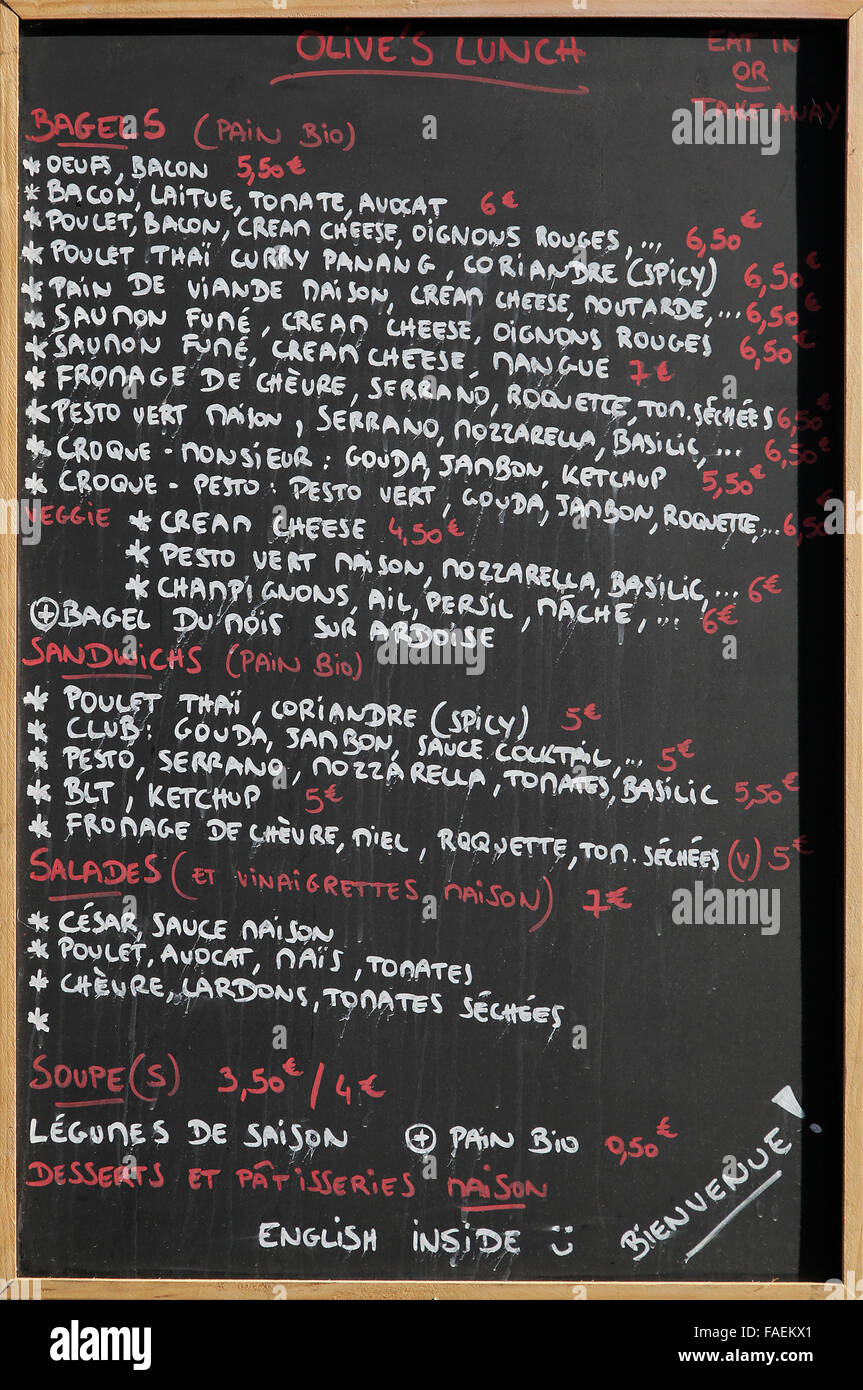 OLIVE'S LUNCH
EAT IN
OR
TAKE AWAY
BAGELS (PAIN BIO)
* OEUFS, BACON 5,50€
* BACON, LAITUE, TOMATE, AVOCAT 6€
* POULET, BACON, CREAM CHEESE, OIGNONS ROUGES, ... 6,50€
* POULET THAÏ CURRY PANANG, CORIANDRE (SPICY) 6,50€
* PAIN DE VIANDE MAISON, CREAM CHEESE, MOUTARDE, ... 6,50€
* SAUMON FUMÉ, CREAM CHEESE, OIGNONS ROUGES 6,50€
* SAUMON FUMÉ, CREAM CHEESE, MANGUE 7€
* FROMAGE DE CHÈVRE, SERRANO, ROQUETTE, TOM. SÉCHÉES 6,50€
* PESTO VERT MAISON, SERRANO, MOZZARELLA, BASILIC, ... 6,50€
* CROQUE-MONSIEUR: GOUDA, JAMBON, KETCHUP 5,50€
* CROQUE-PESTO: PESTO VERT, GOUDA, JAMBON, ROQUETTE, ... 6,50€
VEGGIE * CREAM CHEESE 4,50€
* PESTO VERT MAISON, MOZZARELLA, BASILIC, ... 6€
* CHAMPIGNONS, AIL, PERSIL, MÂCHE, ... 6€
⊕ BAGEL DU MOIS SUR ARDOISE
SANDWICHS (PAIN BIO)
* POULET THAÏ, CORIANDRE (SPICY) 5€
* CLUB: GOUDA, JAMBON, SAUCE COCKTAIL, ... 5€
* PESTO, SERRANO, MOZZARELLA, TOMATES, BASILIC 5,50€
* BLT, KETCHUP 5€
* FROMAGE DE CHÈVRE, MIEL, ROQUETTE, TOM. SÉCHÉES (V) 5€
SALADES (ET VINAIGRETTES MAISON) 7€
* CÉSAR, SAUCE MAISON
* POULET, AVOCAT, MAÏS, TOMATES
* CHÈVRE, LARDONS, TOMATES SÉCHÉES
*
SOUPE(S) 3,50€/4€
LÉGUMES DE SAISON ⊕ PAIN BIO 0,50€
DESSERTS ET PÂTISSERIES MAISON
ENGLISH INSIDE
BIENVENUE!
alamy stock photo
FAEKX1
www.alamy.com